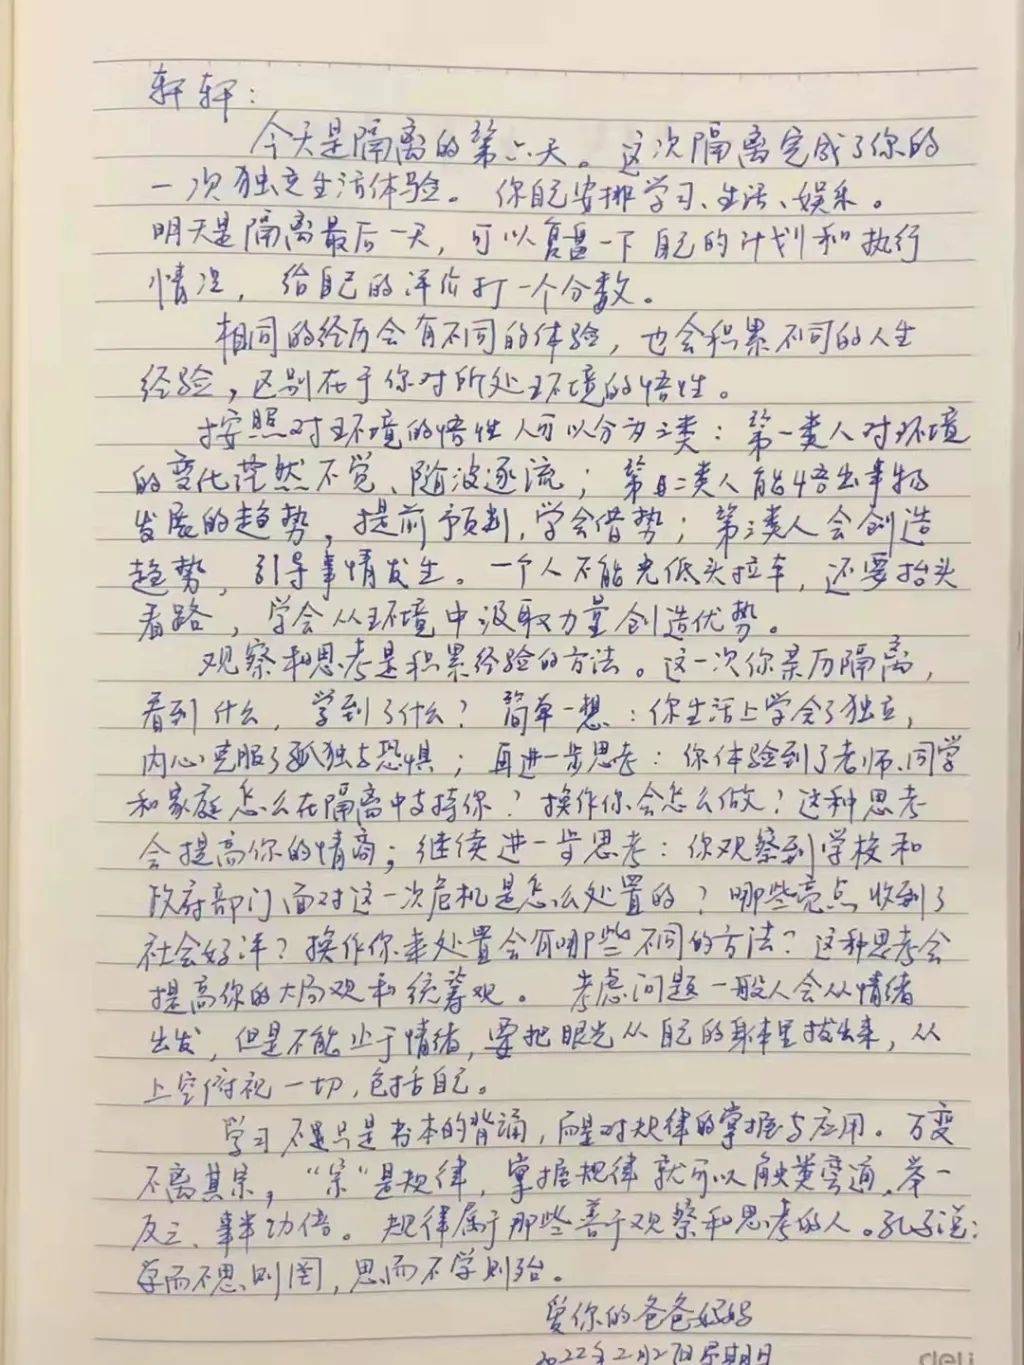 轩轩：
今天是隔离的第六天。这次隔离完成了你的
一次独立生活体验。你自己安排学习、生活、娱乐。
明天是隔离最后一天，可以复盘一下自己的计划和执行
情况，给自己的评价打一个分数。
相同的经历会有不同的体验，也会积累不同的人生
经验，区别在于你对所处环境的悟性。
按照对环境的悟性人可以分为三类：第一类人对环境
的变化茫然不觉、随波逐流；第二类人能悟出事物
发展的趋势，提前预判，学会借势；第三类人会创造
趋势，引导事情发生。一个人不能光低头拉车，还要抬头
看路，学会从环境中汲取力量创造优势。
观察和思考是积累经验的方法。这一次你亲历隔离，
看到什么，学到了什么？简单一想：你生活上学会了独立，
内心克服了孤独与恐惧；再进一步思考：你体验到了老师、同学
和家庭怎么在隔离中支持你？换作你会怎么做？这种思考
会提高你的情商；继续进一步思考：你观察到学校和
政府部门面对这一次危机是怎么处置的？哪些亮点收到了
社会好评？换作你来处置会有哪些不同的方法？这种思考会
提高你的大局观和统筹观。考虑问题一般人会从情绪
出发，但是不能止于情绪，要把眼光从自己的身体里拔出来，从
上空俯视一切，包括自己。
学习不是只是书本的背诵，而是对规律的掌握与应用。万变
不离其宗，“宗”是规律，掌握规律就可以触类旁通、举一
反三、事半功倍。规律属于那些善于观察和思考的人。孔子说：
学而不思则罔，思而不学则殆。
爱你的爸爸妈妈
2022年2月27日星期日
deli